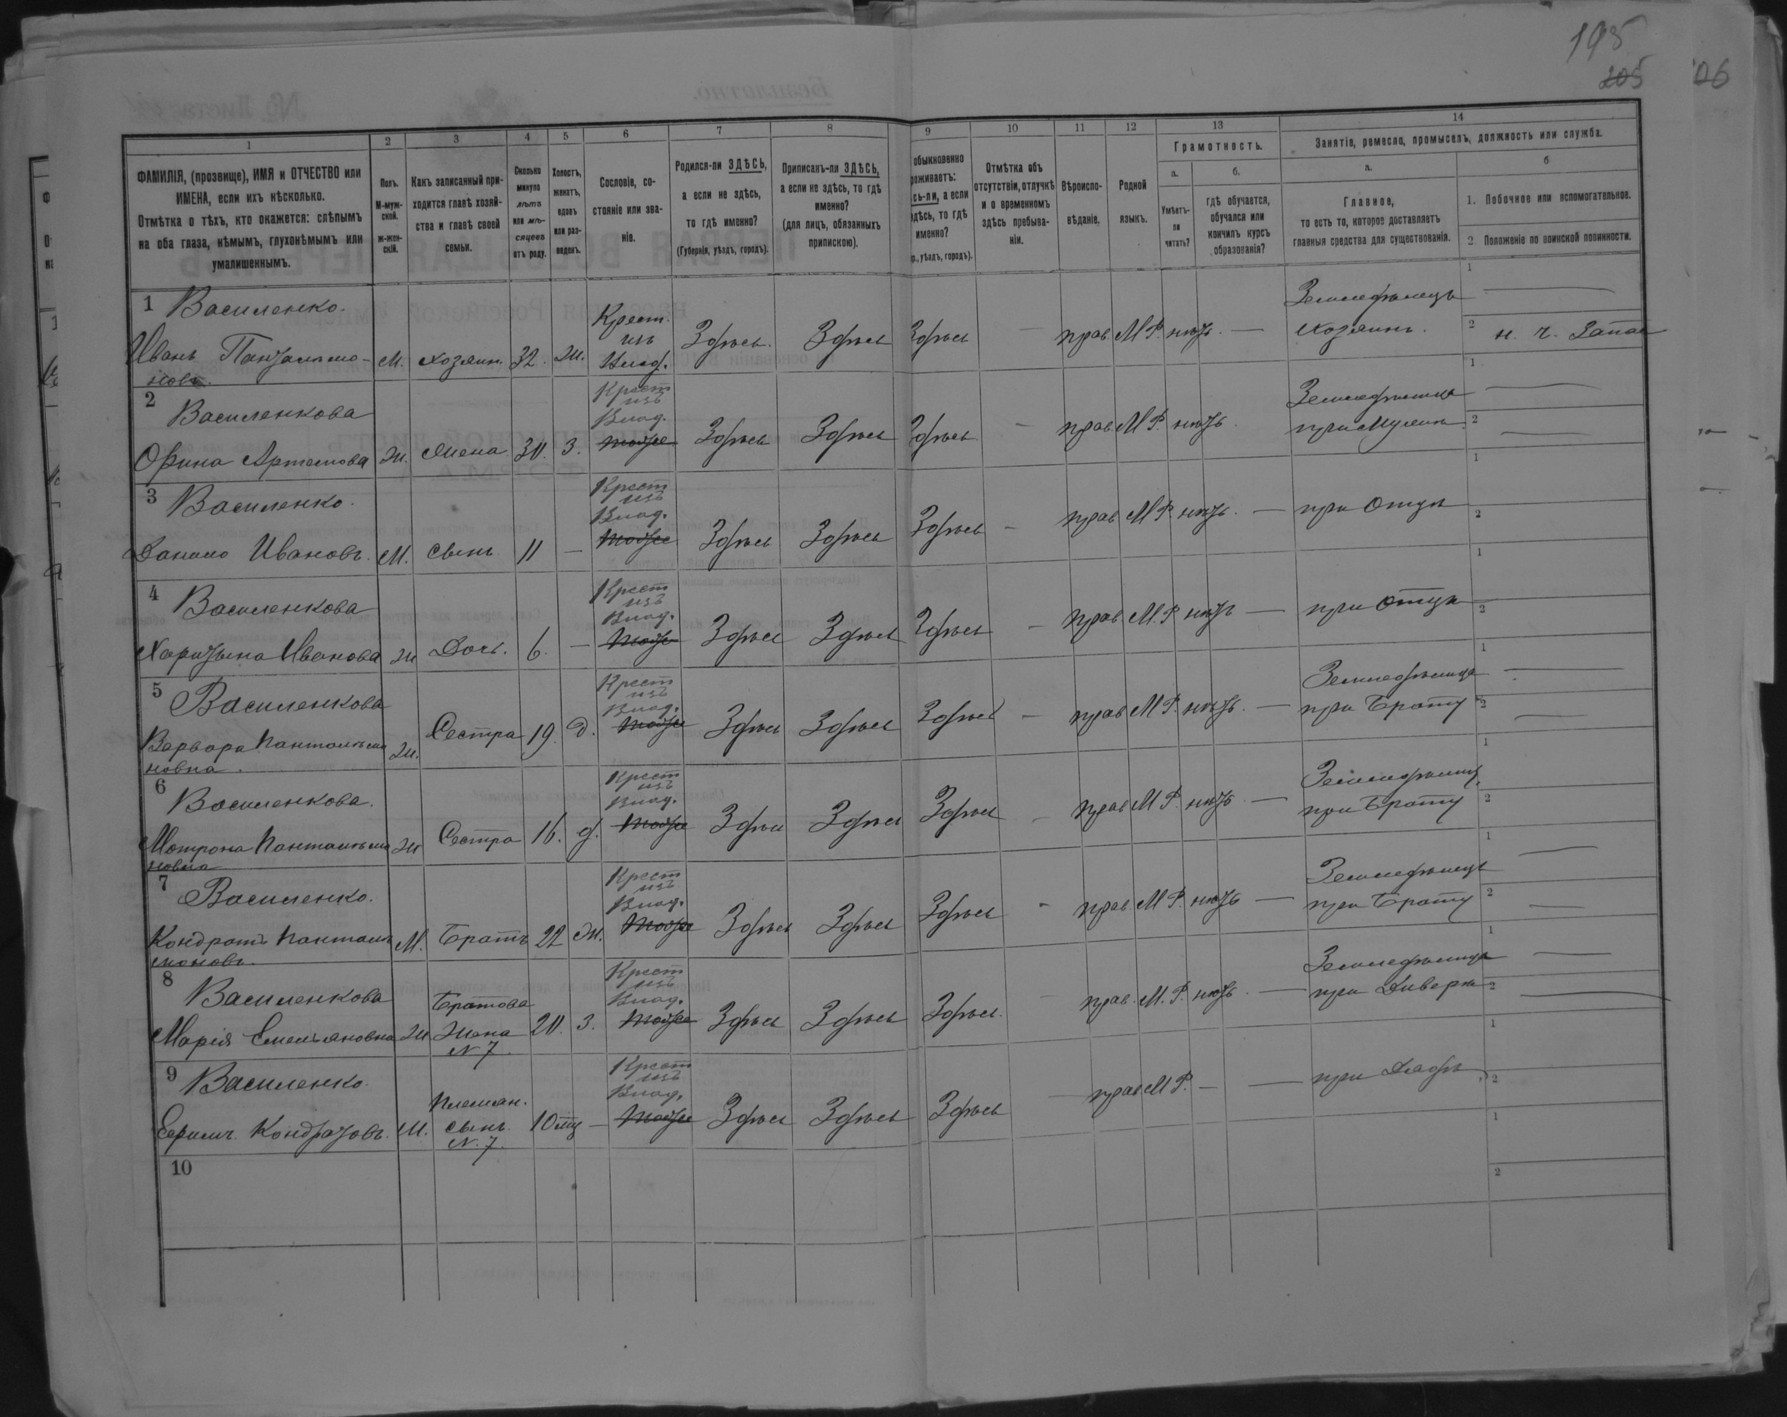 195
205
06
1
2
3
4
5
6
7
8
9
10
11
12
13
14
ФАМИЛІЯ, (прозвище), ИМЯ и ОТЧЕСТВО или
ИМЕНА, если ихъ нѣсколько.
Отмѣтка о тѣхъ, кто окажется: слѣпымъ
на оба глаза, нѣмымъ, глухонѣмымъ или
умалишеннымъ.
Полъ.
М-муж-
ской.
ж-жен-
скій.
Какъ записанный при-
ходится главѣ хозяй-
ства и главѣ своей
семьи.
Сколько
минуло
лѣтъ
или мѣ-
сяцевъ
отъ роду.
Холостъ,
женатъ,
вдовъ
или раз-
веденъ.
Сословіе, со-
стояніе или зва-
ніе.
Родился-ли ЗДѢСЬ,
а если не здѣсь,
то гдѣ именно?
(Губернія, уѣздъ, городъ).
Приписанъ-ли ЗДѢСЬ,
а если не здѣсь, то гдѣ
именно?
(для лицъ, обязанныхъ
припискою).
обыкновенно
роживаетъ:
сь-ли, а если
здѣсь, то гдѣ
именно?
р., уѣздъ, городъ).
Отмѣтка объ
отсутствіи, отлучкѣ
и о временномъ
здѣсь пребыва-
ніи.
Вѣроиспо-
вѣданіе.
Родной
языкъ.
Грамотность.
а.
Умѣетъ-
ли
читать?
б.
гдѣ обучается,
обучался или
кончилъ курсъ
образованія?
Занятіе, ремесло, промыселъ, должность или служба.
а.
Главное,
то есть то, которое доставляетъ
главныя средства для существованія.
б
1. Побочное или вспомогательное.
2. Положеніе по воинской повинности.
1 Василенко.
Иванъ Панталимо-
новъ. М. хозяин. 32. ж. Крест. изъ Влад. Здѣсь. Здѣсь Здѣсь — прав. М.Р. нѣтъ — Земледѣлецъ
хозяинъ. 1 — 2 н. ч. Запас
2 Василенкова
Орина Артемова ж. Жена 30. з. Крест изъ Влад. тоже Здѣсь Здѣсь Здѣсь — прав М.Р. нѣтъ. Земледѣлица
при Мужѣ 1 — 2 —
3 Василенко.
Данило Ивановъ. М. сынъ. 11 — Крест изъ Влад. тоже Здѣсь Здѣсь Здѣсь — прав М.Р. нѣтъ. — при Отцѣ 1 2
4 Василенкова
Харитына Иванова ж Дочь. 6. — Крест изъ Влад. тоже Здѣсь Здѣсь Здѣсь — прав М.Р. нѣтъ — при Отцѣ 1 2
5 Василенкова
Варвара Панталимо
новна. ж. Сестра 19. д. Крест изъ Влад. тоже Здѣсь Здѣсь Здѣсь — прав М.Р. нѣтъ. — Земледѣлица
при Брату 1 — 2 —
6 Василенкова.
Мотрона Панталимо
новна ж Сестра 16. д. Крест изъ Влад. тоже Здѣсь Здѣсь Здѣсь — прав М.Р. нѣтъ — Земледѣлица
при Брату 1 2
7 Василенко.
Кондратъ Пантали
моновъ. М. Братъ 22 ж. Крест изъ Влад. тоже Здѣсь Здѣсь Здѣсь - прав М.Р. нѣтъ — Земледѣлецъ
при Брату 1 — 2 —
8 Василенкова
Марія Емельяновна ж Братова Жена N 7. 20. з. Крест изъ Влад. тоже Здѣсь Здѣсь Здѣсь. прав. М.Р. нѣтъ — Земледѣлица
при Диверѣ 1 — 2 —
9 Василенко
Кондратовъ. М. племян. сынъ N. 7. 10 Крест изъ Влад. тоже Здѣсь Здѣсь Здѣсь прав М.Р. — — при 1 2
10 1 2